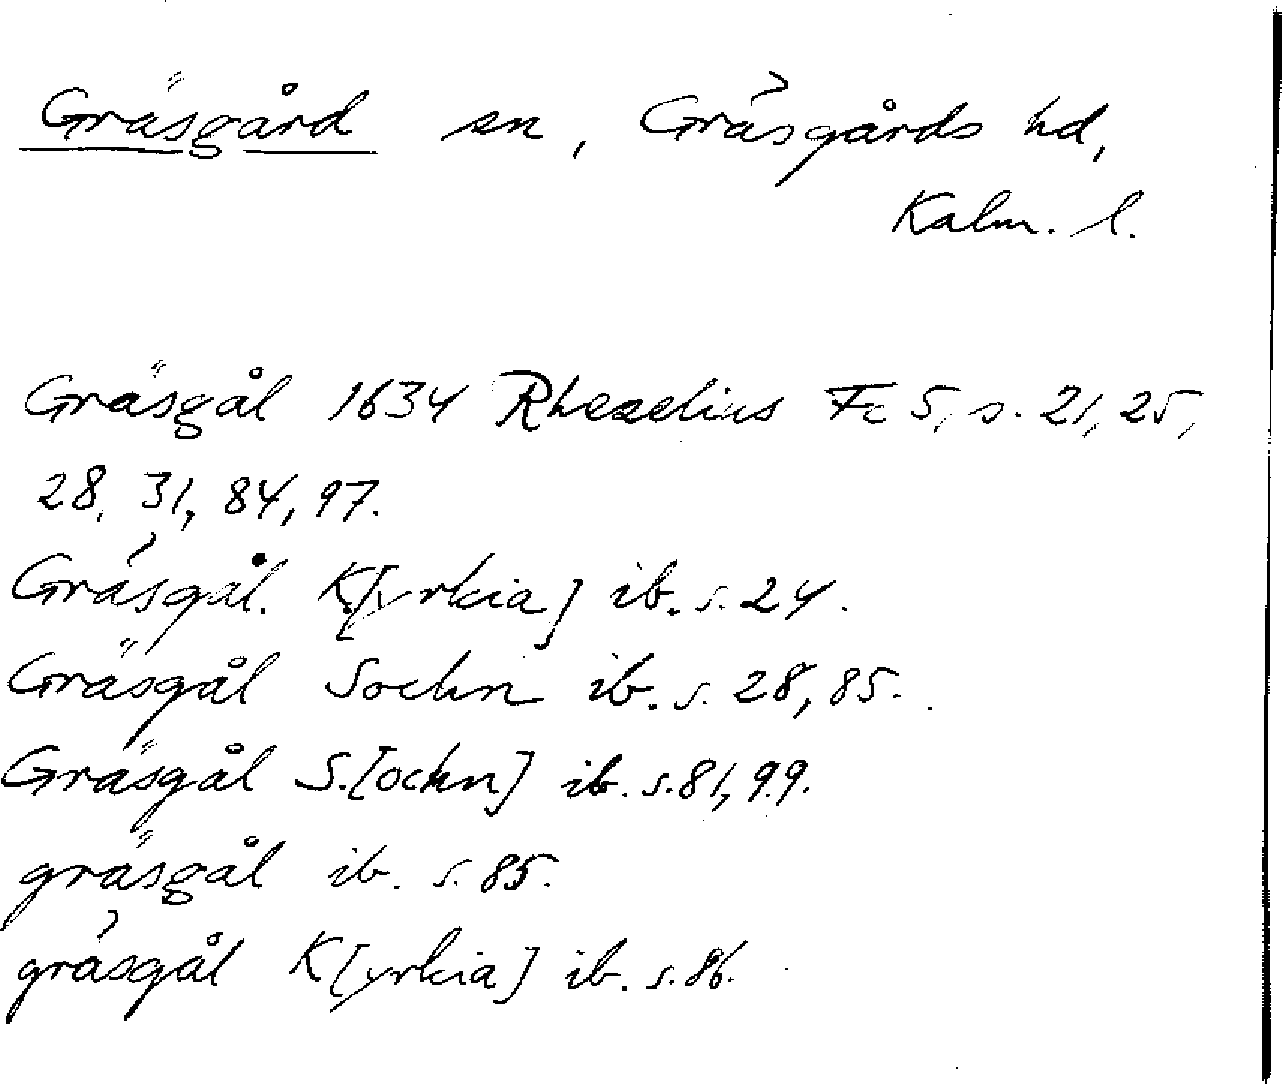 Gräsgård sn, Gräsgårds hd,
Kalm. l.
Gräsgål 1634 Rhezelius Fc 5, s. 21, 25,
28, 31, 84, 97.
Gräsgål. K[yrkia] ib. s. 24.
Gräsgål Sochn ib. s. 28, 85.
Gräsgål S.[ochn] ib. s. 81, 99.
gräsgål ib. s. 85.
gräsgål K[yrkia] ib. s. 86.